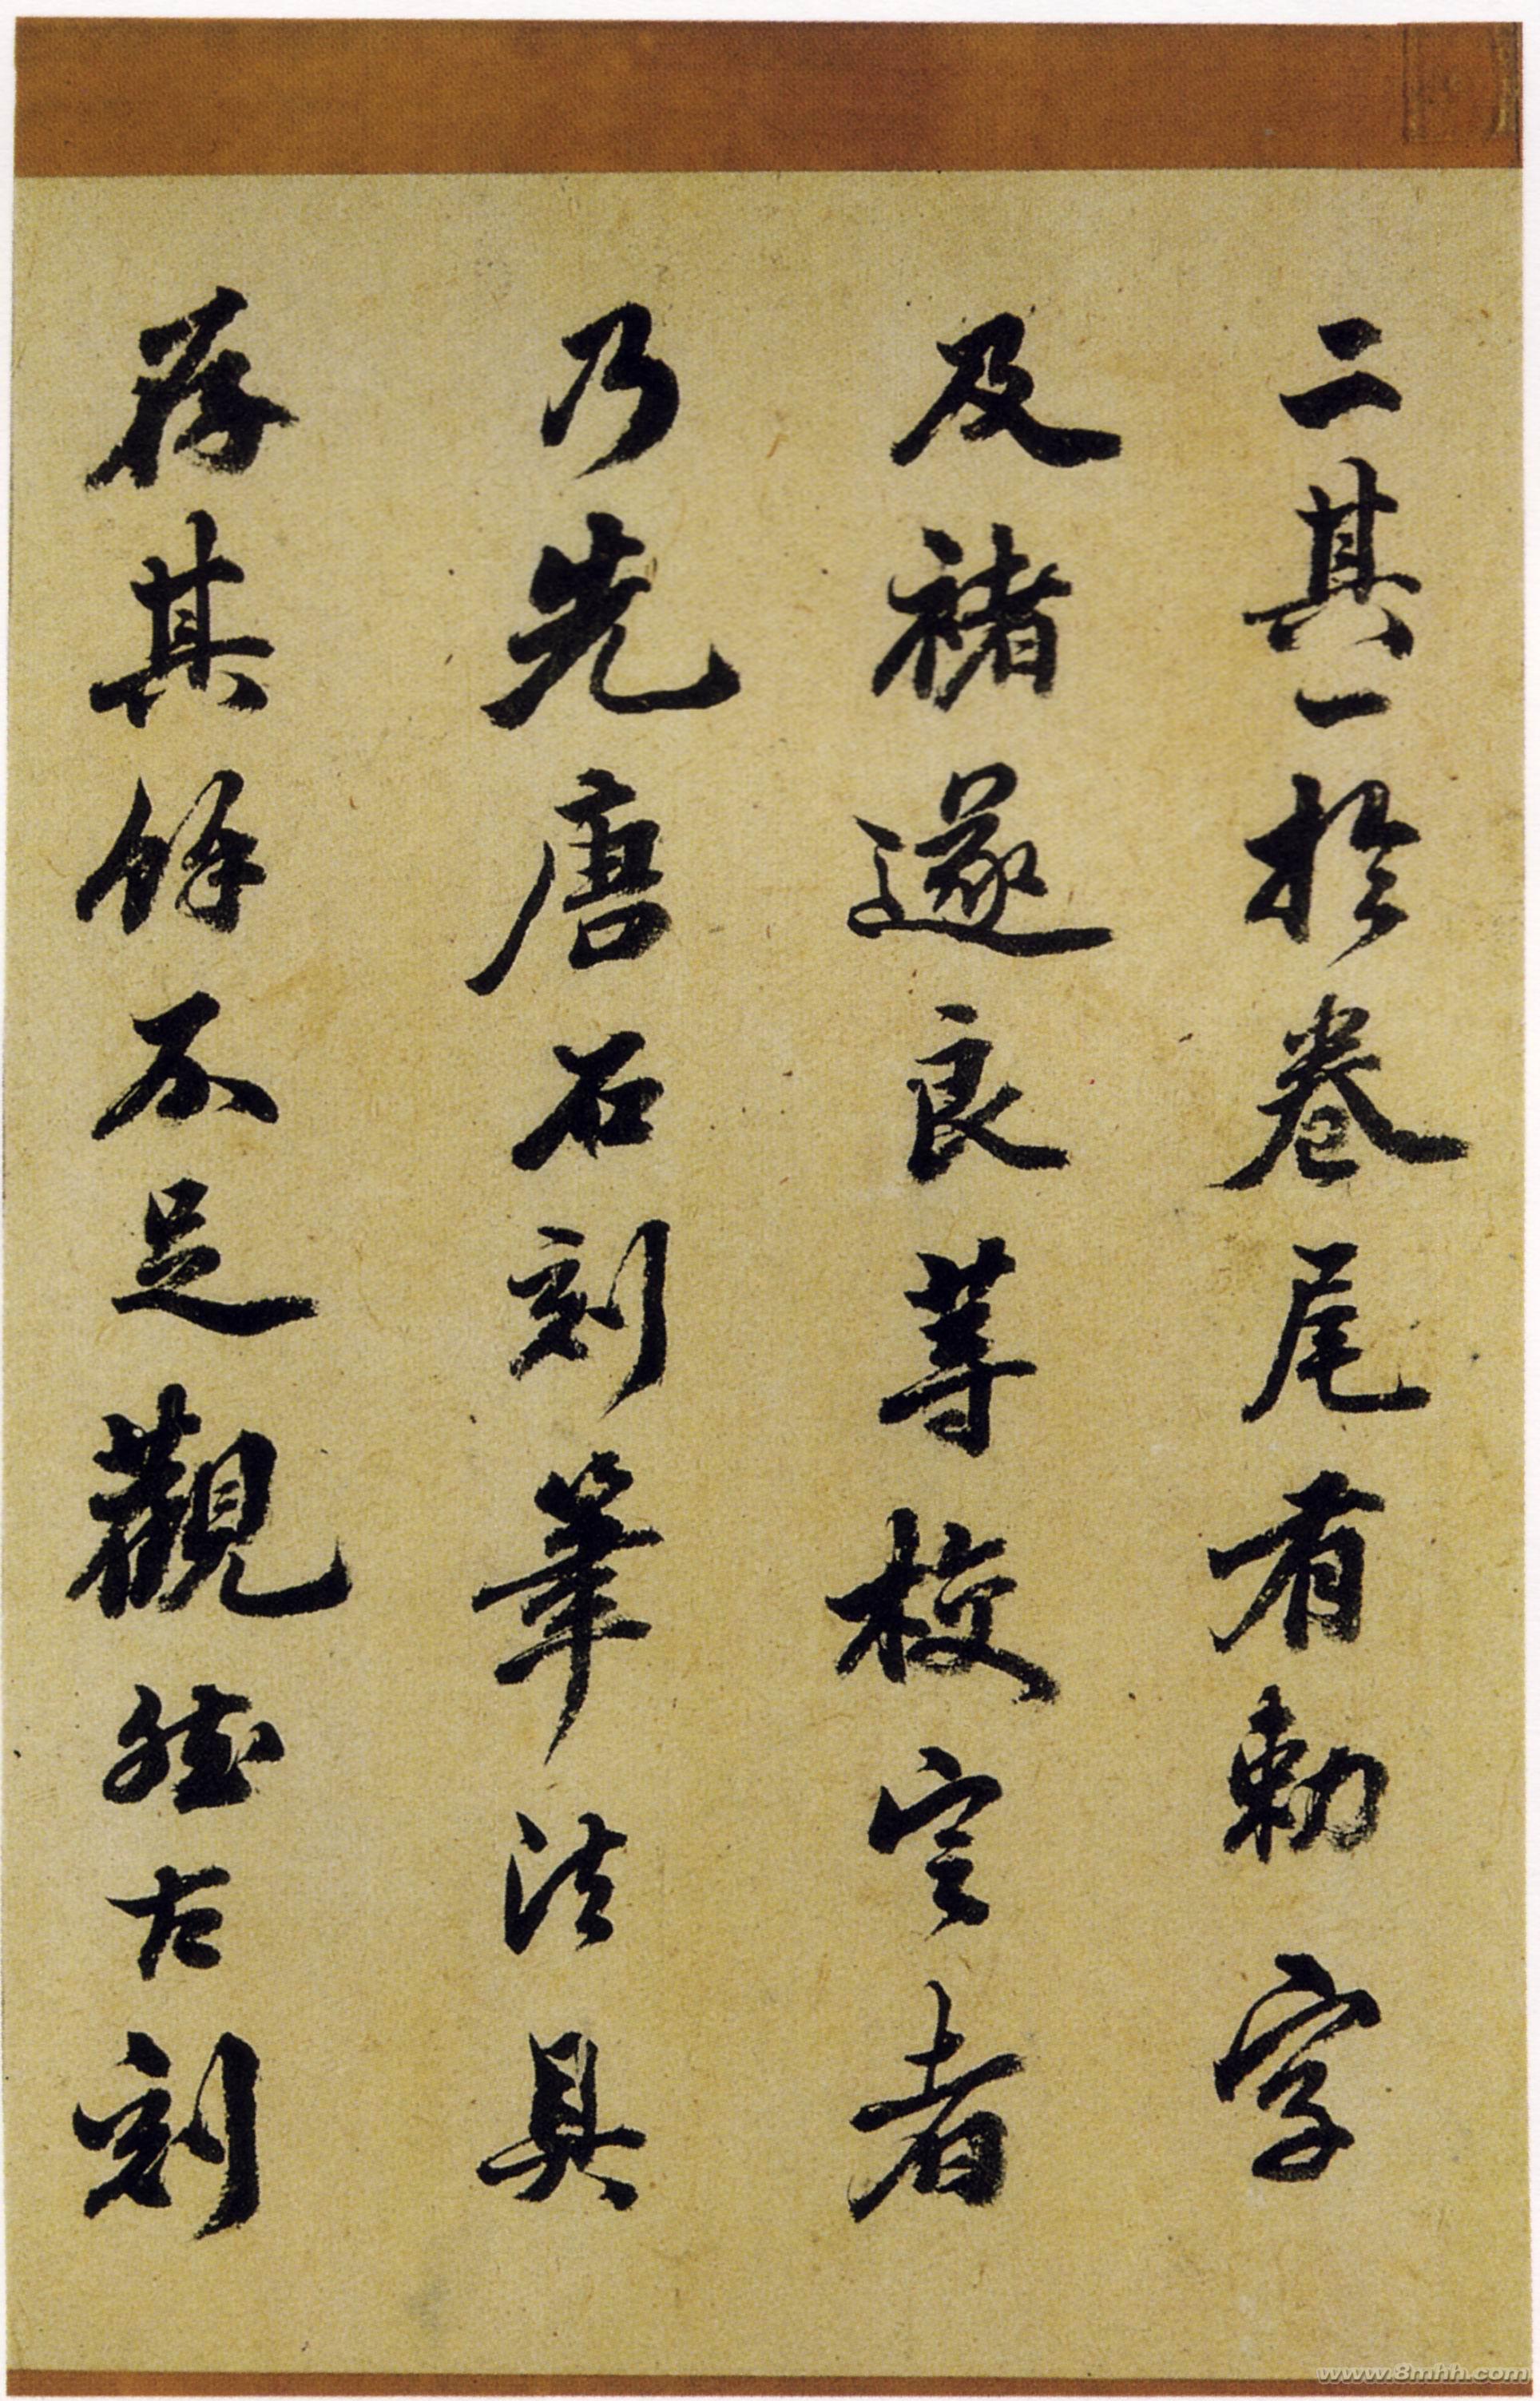 二其一於卷尾有勅字
及褚遂良等校定者
乃先唐石刻筆法具
存其餘不足觀然古刻
www.8mhh.com